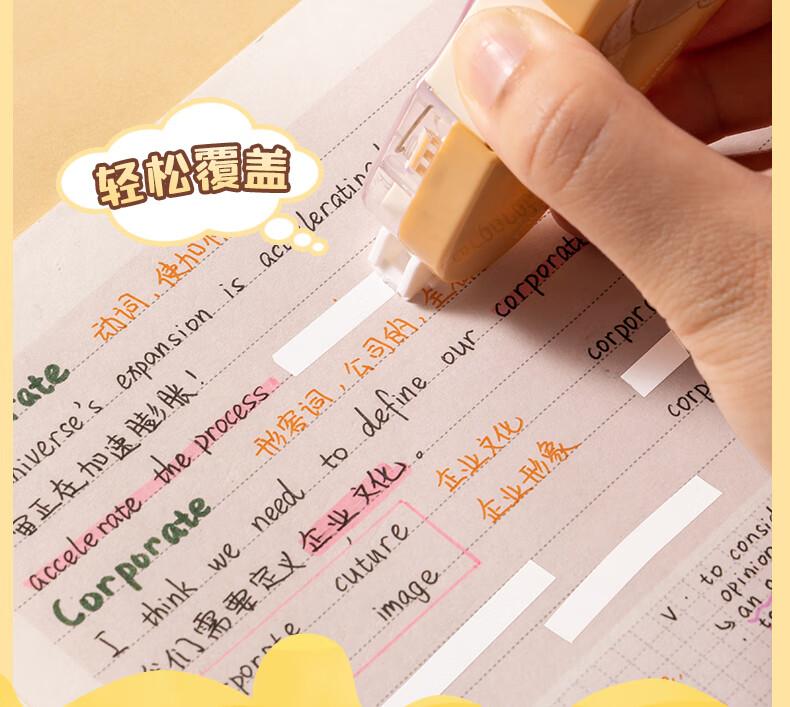 轻松覆盖
动词，使加
rate
niverse's expansion is accelerating
宙正在加速膨胀！
accelerate the process
形容词，公司的，全
Corporate
I think we need to define our corporate
我们需要定义企业文化。
企业文化
企业形象
porate cuture
image
corpor
corp
v. to consid
opinion
an